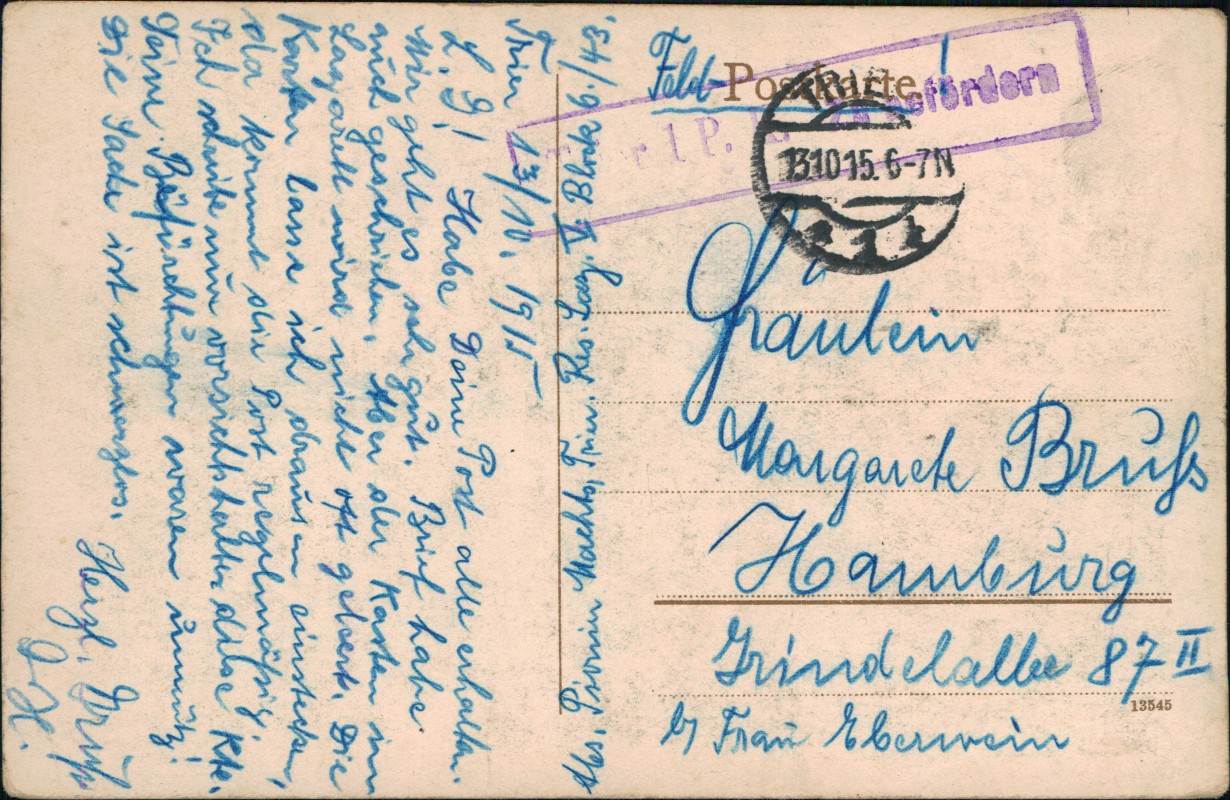 Feld-Postkarte!
Trier 1 P. K. Zu befördern
TRIER
13.10.15. 6-7N
Fräulein
Margarete Bruhs
Hamburg
Grindelallee 87 II
b/ Frau Eberwein
13545
Abs. Pionier Maehts, Trier. Res. Laz. V. Block 9./43.
Trier 13/10. 1915
L. G! Habe Deine Post alle erhalten.
Mir geht es sehr gut. Brief habe
auch geschrieben. Aber der Kasten im
Lazarett wird nicht oft geleert. Die
Karten lasse ich draus en einstecken,
da kommt die Post regelmäßig.
Ich schreibe nur vorsichtshalber diese Kte.
Deine Befürchtungen waren unnütz!
Die Sache ist schmerzlos.
Herzl. Gruß
H.